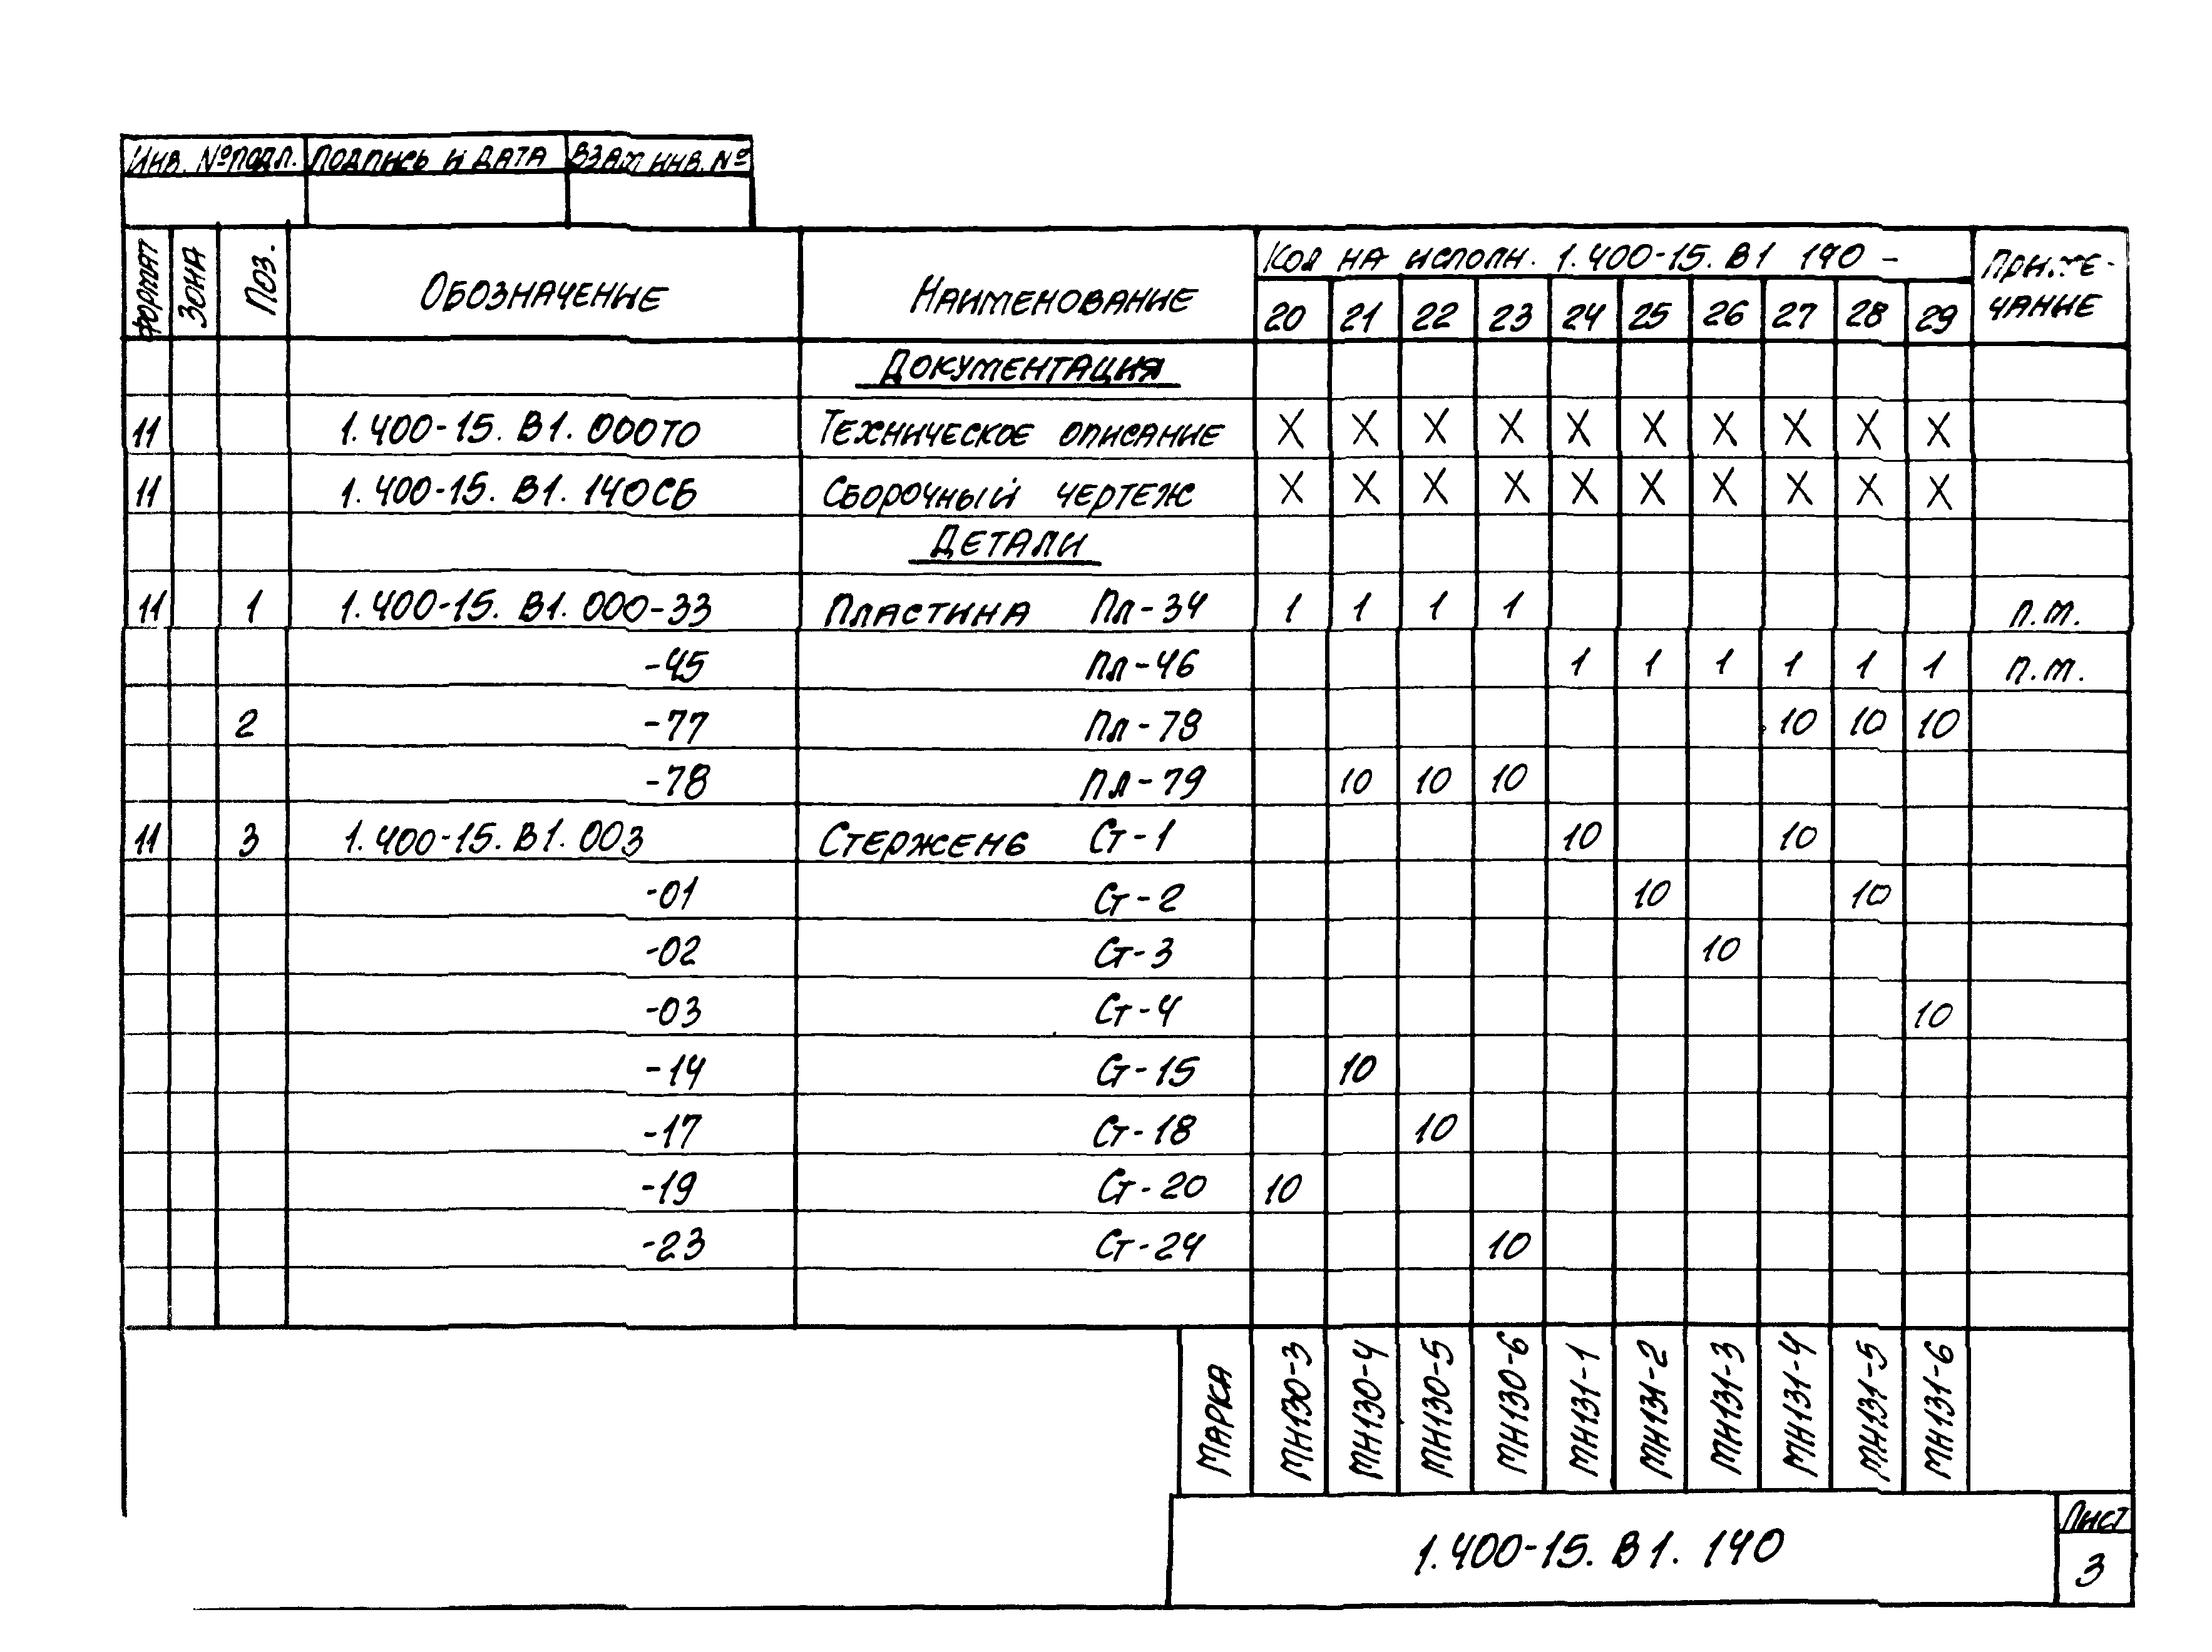 Инв. № подл. Подпись и дата Взам инв. №
Формат Зона Поз. Обозначение Наименование Кол на исполн. 1.400-15.В1 140 - Примечание
20 21 22 23 24 25 26 27 28 29
Документация
11 1.400-15.В1.000ТО Техническое описание X X X X X X X X X X
11 1.400-15.В1.140СБ Сборочный чертеж X X X X X X X X X X
Детали
11 1 1.400-15.В1.000-33 Пластина Пл-34 1 1 1 1 п.м.
-45 Пл-46 1 1 1 1 1 1 п.м.
2 -77 Пл-78 10 10 10
-78 Пл-79 10 10 10
11 3 1.400-15.В1.003 Стержень Ст-1 10 10
-01 Ст-2 10 10
-02 Ст-3 10
-03 Ст-4 10
-14 Ст-15 10
-17 Ст-18 10
-19 Ст-20 10
-23 Ст-24 10
Марка МН130-3 МН130-4 МН130-5 МН130-6 МН131-1 МН131-2 МН131-3 МН131-4 МН131-5 МН131-6
1.400-15.В1.140
Лист
3